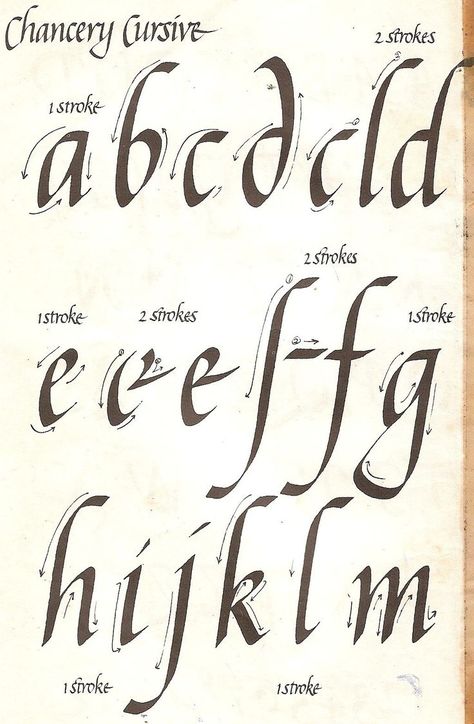 Chancery Cursive
2 strokes
1 stroke
a b c d c l d
2 strokes
1 stroke 2 strokes 1 stroke
e e e ſ f g
h i j k l m
1 stroke 1 stroke